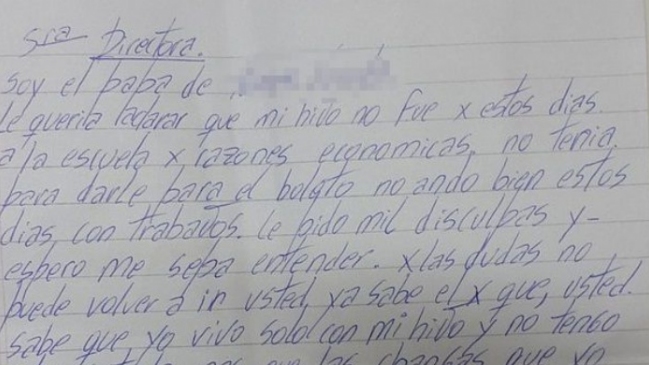 Sra Directora.
Soy el papa de
le queria aclarar que mi hivo no fue x estos dias.
a la escuela x razones economicas, no tenia.
para darle para el boleto no ando bien estos
dias, con trabavos. le pido mil disculpas y-
espero me sepa entender. x las dudas no
puede volver a in usted, ya sabe el x que, usted.
sabe que, yo vivo solo con mi hivo y no tengo
que las changas que yo